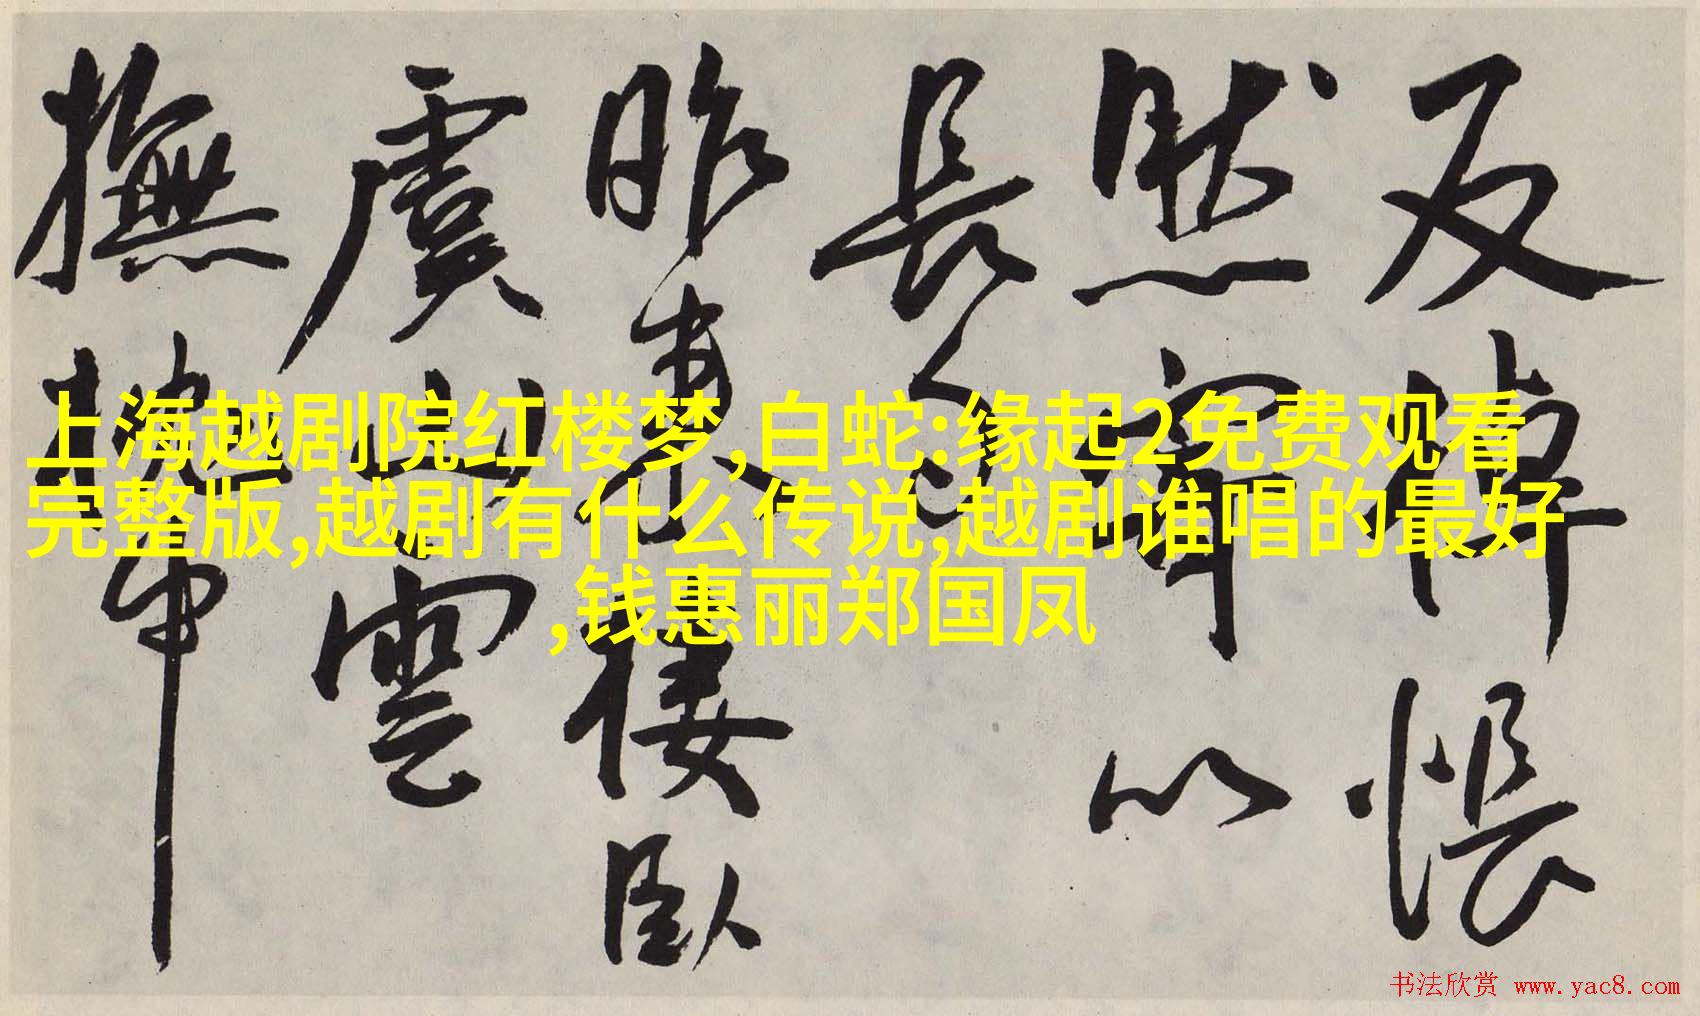 上海越剧院红楼梦,白蛇:缘起2免费观看
完整版,越剧有什么传说,越剧谁唱的最好
,钱惠丽郑国凤
反棹悵
然寄以
長句
昨来棲臥
虞山雲
撫
书法欣赏 www.yac8.com